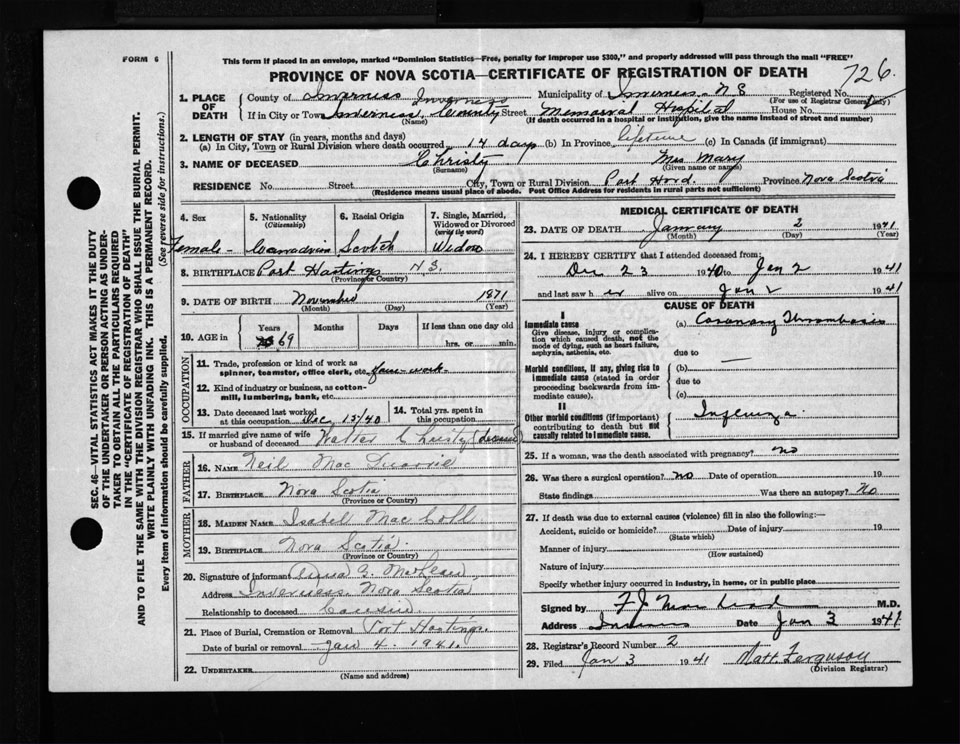 FORM 6
This form if placed in an envelope, marked "Dominion Statistics—Free, penalty for improper use $300," and properly addressed will pass through the mail "FREE"
PROVINCE OF NOVA SCOTIA—CERTIFICATE OF REGISTRATION OF DEATH
726
1. PLACE OF DEATH County of Inverness Municipality of Inverness - N S Registered No.
(For use of Registrar General only)
If in City or Town Inverness, Inverness County (Name) Street Memorial Hospital House No.
(If death occurred in a hospital or institution, give the name instead of street and number)
2. LENGTH OF STAY (in years, months and days)
(a) In City, Town or Rural Division where death occurred 14 days (b) In Province lifetime (c) In Canada (if immigrant)
3. NAME OF DECEASED Christy (Surname) Mrs Mary (Given name or names)
RESIDENCE No. Street City, Town or Rural Division Port Hood. Province Nova Scotia
(Residence means usual place of abode. Post Office Address for residents in rural parts not sufficient)
4. Sex Female -
5. Nationality (Citizenship) Canadian
6. Racial Origin Scotch
7. Single, Married, Widowed or Divorced (write the word) Widow
8. BIRTHPLACE Port Hastings N.S.
(Province or Country)
9. DATE OF BIRTH November (Month) (Day) 1871 (Year)
10. AGE in Years 69 Months Days If less than one day old hrs. or min.
OCCUPATION
11. Trade, profession or kind of work as spinner, teamster, office clerk, etc.
12. Kind of industry or business, as cotton-mill, lumbering, bank, etc.
13. Date deceased last worked at this occupation Dec 15/40 14. Total yrs. spent in this occupation
15. If married give name of wife or husband of deceased Walter Christy (deceased)
FATHER
16. NAME Neil Mac
17. BIRTHPLACE Nova Scotia
(Province or Country)
MOTHER
18. MAIDEN NAME Isabel MacColl
19. BIRTHPLACE Nova Scotia
(Province or Country)
20. Signature of informant MacLean
Address Inverness, Nova Scotia
Relationship to deceased Cousin.
21. Place of Burial, Cremation or Removal Port Hastings.
Date of burial or removal Jan 4. 1941.
22. UNDERTAKER
(Name and address)
MEDICAL CERTIFICATE OF DEATH
23. DATE OF DEATH January (Month) 2 (Day) 1941 (Year)
24. I HEREBY CERTIFY that I attended deceased from:
Dec 23 1940 to Jan 2 1941
and last saw her alive on Jan 2 1941
CAUSE OF DEATH
I
Immediate cause
Give disease, injury or complication which caused death, not the mode of dying, such as heart failure, asphyxia, asthenia, etc.
(a) Coronary Thrombosis
due to
Morbid conditions, if any, giving rise to immediate cause (stated in order proceeding backwards from immediate cause).
(b)
due to
(c)
II
Other morbid conditions (if important) contributing to death but not causally related to immediate cause.
Influenza.
25. If a woman, was the death associated with pregnancy? no
26. Was there a surgical operation? no Date of operation 19
State findings Was there an autopsy? No
27. If death was due to external causes (violence) fill in also the following:—
Accident, suicide or homicide? Date of injury 19
(State which)
Manner of injury
(How sustained)
Nature of injury
Specify whether injury occurred in industry, in home, or in public place
Signed by M.D.
Address Inverness Date Jan 3 1941
28. Registrar's Record Number 2
29. Filed Jan 3 1941 Matt. Ferguson
(Division Registrar)
SEC. 46—VITAL STATISTICS ACT MAKES IT THE DUTY
OF THE UNDERTAKER OR PERSON ACTING AS UNDER-
TAKER TO OBTAIN ALL THE PARTICULARS REQUIRED
IN THE "CERTIFICATE OF REGISTRATION OF DEATH"
AND TO FILE THE SAME WITH THE DIVISION REGISTRAR WHO SHALL ISSUE THE BURIAL PERMIT.
WRITE PLAINLY WITH UNFADING INK. THIS IS A PERMANENT RECORD.
Every item of information should be carefully supplied. (See reverse side for instructions.)